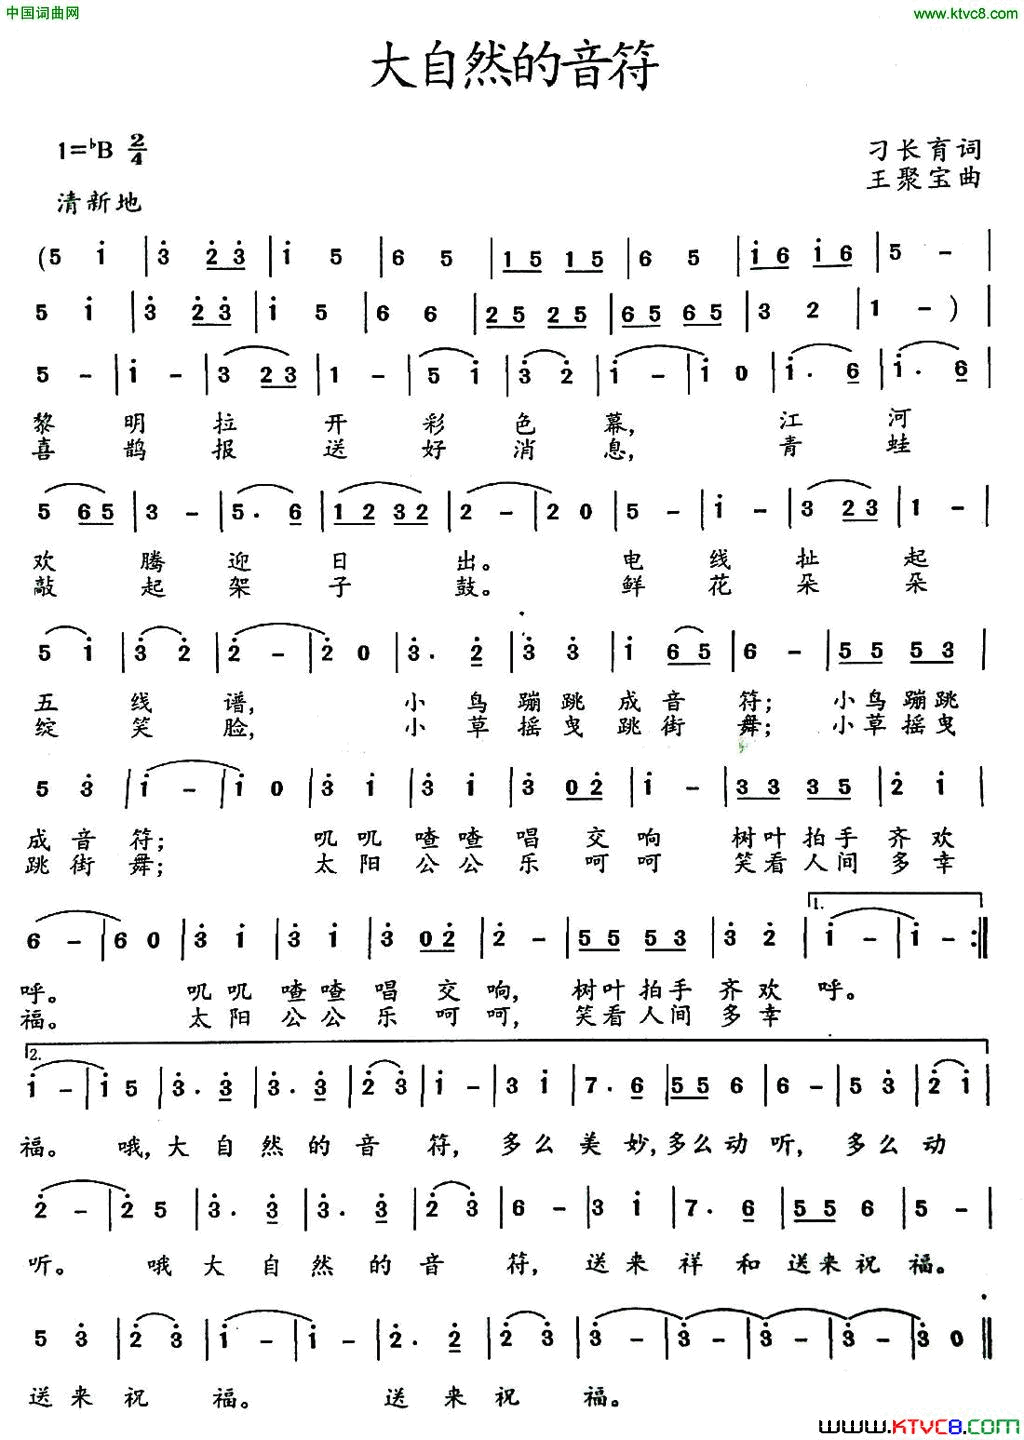 中国词曲网
www.ktvc8.com
大自然的音符
1=♭B 2/4
刁长育词
王聚宝曲
清新地
(5 i | 3 2 3 | i 5 | 6 5 | 1 5 1 5 | 6 5 | i 6 i 6 | 5 - |
5 i | 3 2 3 | i 5 | 6 6 | 2 5 2 5 | 6 5 6 5 | 3 2 | 1 - ) |
5 - | i - | 3 2 3 | 1 - | 5 i | 3 2 | i - | i 0 | i . 6 | i . 6 |
黎 明 拉 开 彩 色 幕, 江 河
喜 鹊 报 送 好 消 息, 青 蛙
5 6 5 | 3 - | 5 . 6 | 1 2 3 2 | 2 - | 2 0 | 5 - | i - | 3 2 3 | 1 - |
欢 腾 迎 日 出。 电 线 扯 起
敲 起 架 子 鼓。 鲜 花 朵 朵
5 i | 3 2 | 2 - | 2 0 | 3 . 2 | 3 3 | i 6 5 | 6 - | 5 5 5 3 |
五 线 谱, 小 鸟 蹦 跳 成 音 符; 小 鸟 蹦 跳
绽 笑 脸, 小 草 摇 曳 跳 街 舞; 小 草 摇 曳
5 3 | i - | i 0 | 3 i | 3 i | 3 0 2 | i - | 3 3 3 5 | 2 i |
成 音 符; 叽 叽 喳 喳 唱 交 响 树 叶 拍 手 齐 欢
跳 街 舞; 太 阳 公 公 乐 呵 呵 笑 看 人 间 多 幸
1.
6 - | 6 0 | 3 i | 3 i | 3 0 2 | 2 - | 5 5 5 3 | 3 2 | i - | i - :||
呼。 叽 叽 喳 喳 唱 交 响, 树 叶 拍 手 齐 欢 呼。
福。 太 阳 公 公 乐 呵 呵, 笑 看 人 间 多 幸
2.
i - | i 5 | 3 . 3 | 3 . 3 | 2 3 | i - | 3 i | 7 . 6 | 5 5 6 | 6 - | 5 3 | 2 i |
福。 哦, 大 自 然 的 音 符, 多 么 美 妙, 多 么 动 听, 多 么 动
2 - | 2 5 | 3 . 3 | 3 . 3 | 2 3 | 6 - | 3 i | 7 . 6 | 5 5 6 | 5 - |
听。 哦 大 自 然 的 音 符, 送 来 祥 和 送 来 祝 福。
5 3 | 2 3 | i - | i - | 2 . 2 | 2 3 | 3 - | 3 - | 3 - | 3 - | 3 0 ||
送 来 祝 福。 送 来 祝 福。
www.KTVC8.com